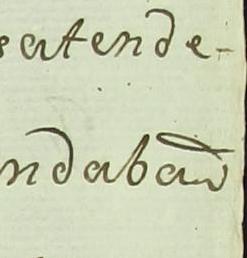 satende-
ndaban